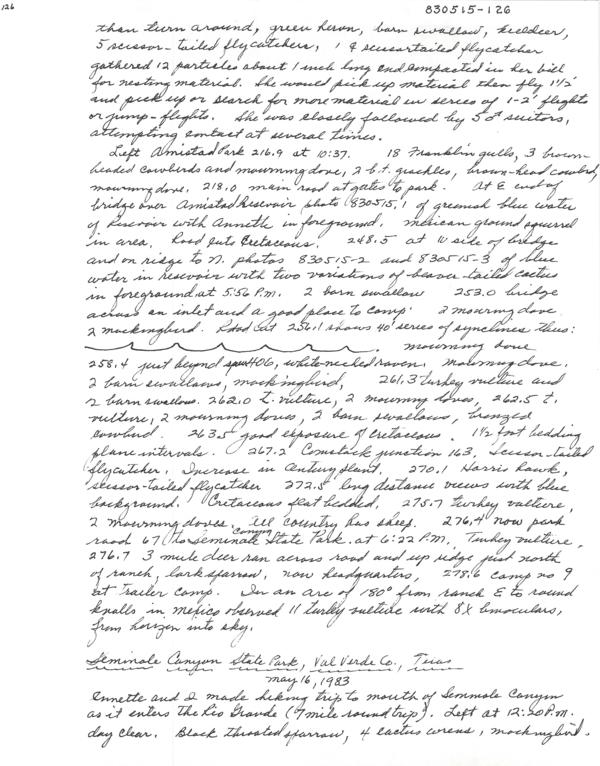 126
830515-126
than turn around, green heron, barn swallow, killdeer,
5 scissor-tailed flycatchers, 1 ♀ scissortailed flycatcher
gathered 12 particles about 1 inch long and compacted in her bill
for nesting material. She would pick up material then fly 1½'
and pick up or search for more material in series of 1-2' flights
or jump-flights. She was closely followed by 5 ♂ suitors,
attempting contact at several times.
Left Amistad Park 216.9 at 10:37. 18 Franklin gulls, 3 brown-
headed cowbirds and mourning dove, 2 b.t. grackles, brown-head cowbird,
mourning dove. 218.0 main road at gates to park. At E end of
bridge over Amistad Reservoir photo 830515,1 of greenish blue water
of Resevoir with Annette in foreground. Mexican ground squirrel
in area. Road cuts Cretaceous. 248.5 at W side of bridge
and on ridge to N. photos 830515-2 and 830515-3 of blue
water in reservoir with two variations of beaver-tailed cactus
in foreground at 5:56 P.M. 2 barn swallow 253.0 bridge
across an inlet and a good place to camp. 2 mourning dove
2 mockingbird. Road cut 256.1 shows 40' series of synclines thus:
mourning dove
258.4 just beyond spur 406, white-necked raven, mourning dove.
2 barn swallows, mockingbird, 261.3 turkey vulture and
2 barn swallows. 262.0 t. vulture, 2 mourning doves, 262.5 t.
vulture, 2 mourning doves, 2 barn swallows, bronzed
cowbird. 263.5 good exposure of Cretaceous. 1½ foot bedding
plane intervals. 267.2 Comstock junction 163, Scissor-tailed
flycatcher, Increase in Century plant. 270.1 Harris hawk,
scissor-tailed flycatcher 272.5 long distance views with blue
background. Cretaceous flat bedded, 275.7 turkey vulture,
2 mourning doves. All country has sheep. 276.4 now park
road 67 to Seminole Canyon State Park at 6:22 P.M. Turkey vulture,
276.7 3 mule deer ran across road and up ridge just north
of ranch, lark sparrow, now headquarters, 278.6 camp no 9
at trailer camp. In an arc of 180° from ranch E to round
knolls in Mexico observed 11 turkey vulture with 8X binoculars,
from horizon into sky.
Seminole Canyon State Park, Val Verde Co., Texas
May 16, 1983
Annette and I made hiking trip to mouth of Seminole Canyon
as it enters the Rio Grande (7 mile round trip). Left at 12:20 P.M.
day clear. Black throated sparrow, 4 cactus wrens, mockingbird.